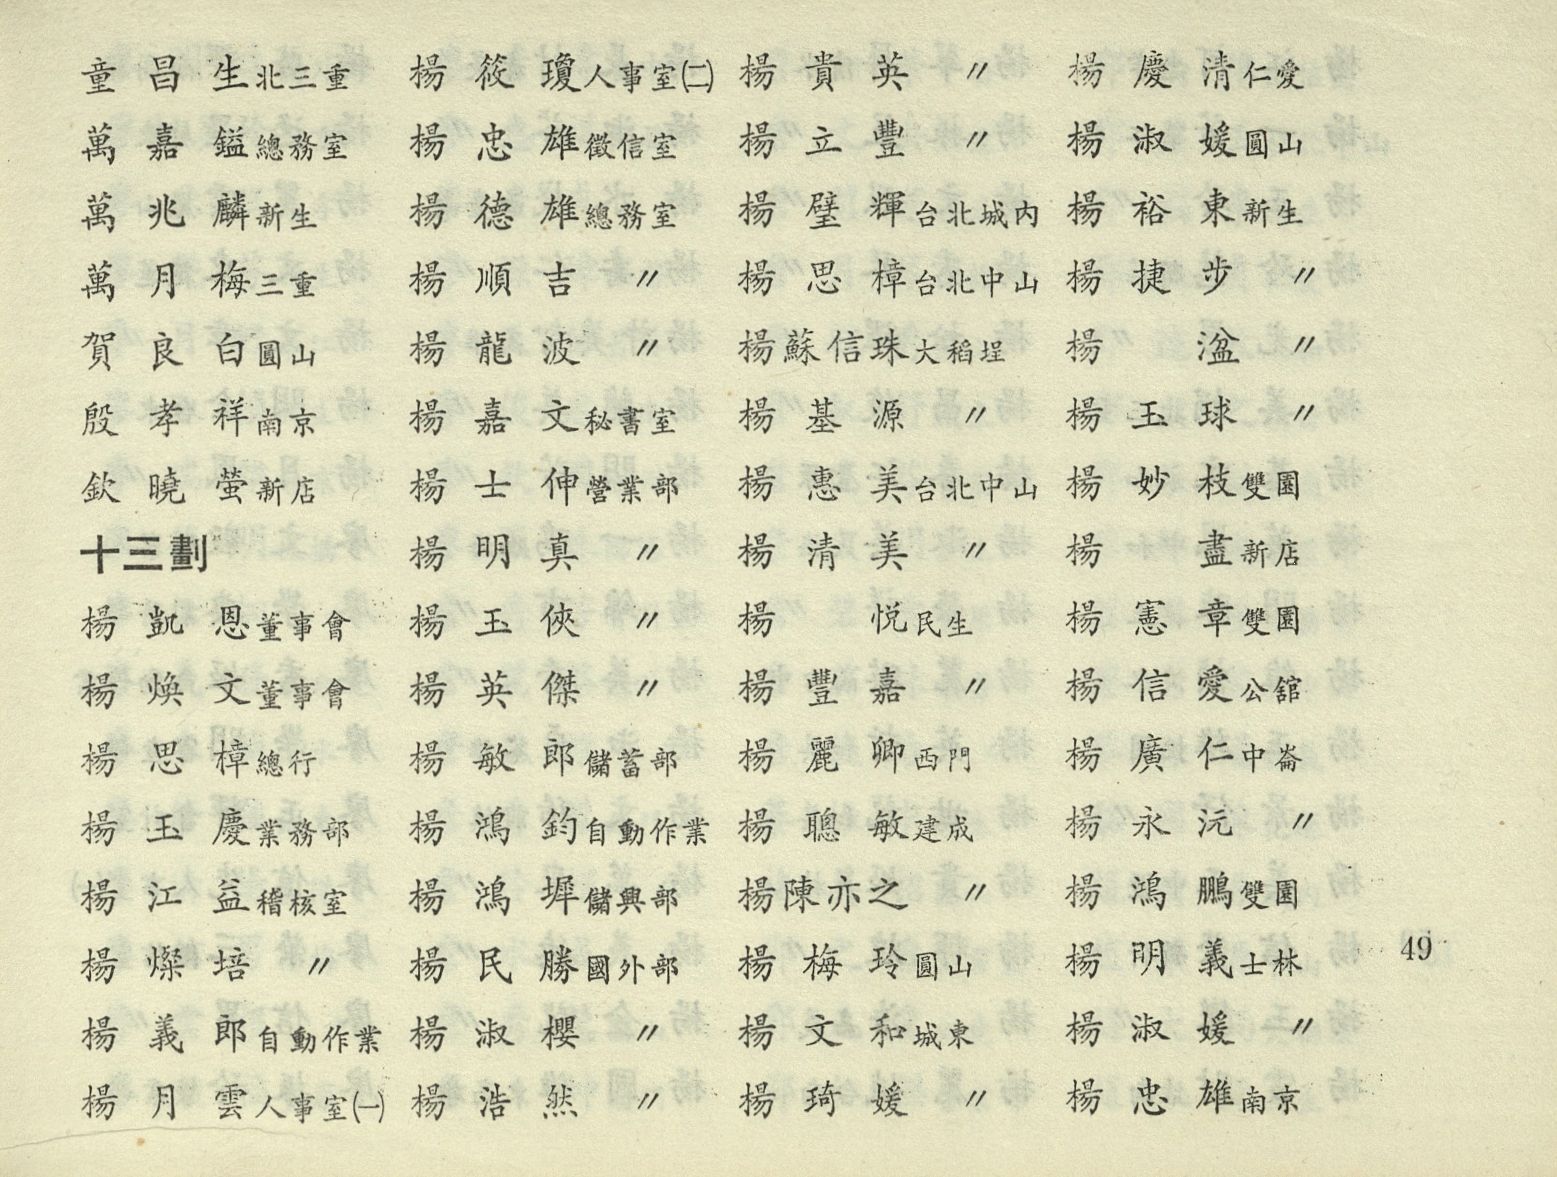 童昌生北三重
萬嘉鎰總務室
萬兆麟新生
萬月梅三重
賀良白圓山
殷孝祥南京
欽曉螢新店
十三劃
楊凱恩董事會
楊煥文董事會
楊思樟總行
楊玉慶業務部
楊江益稽核室
楊燦培〃
楊義郎自動作業
楊月雲人事室㈠
楊筱瓊人事室㈡
楊忠雄徵信室
楊德雄總務室
楊順吉〃
楊龍波〃
楊嘉文秘書室
楊士伸營業部
楊明真〃
楊玉俠〃
楊英傑〃
楊敏郎儲蓄部
楊鴻鈞自動作業
楊鴻墀儲興部
楊民勝國外部
楊淑櫻〃
楊浩然〃
楊貴英〃
楊立豐〃
楊璧輝台北城內
楊思樟台北中山
楊蘇信珠大稻埕
楊基源〃
楊惠美台北中山
楊清美〃
楊悅民生
楊豐嘉〃
楊麗卿西門
楊聰敏建成
楊陳亦之〃
楊梅玲圓山
楊文和城東
楊琦媛〃
楊慶清仁愛
楊淑媛圓山
楊裕東新生
楊捷步〃
楊溢〃
楊玉球〃
楊妙枝雙園
楊盡新店
楊憲章雙園
楊信愛公舘
楊廣仁中崙
楊永沅〃
楊鴻鵬雙園
楊明義士林
楊淑媛〃
楊忠雄南京
49